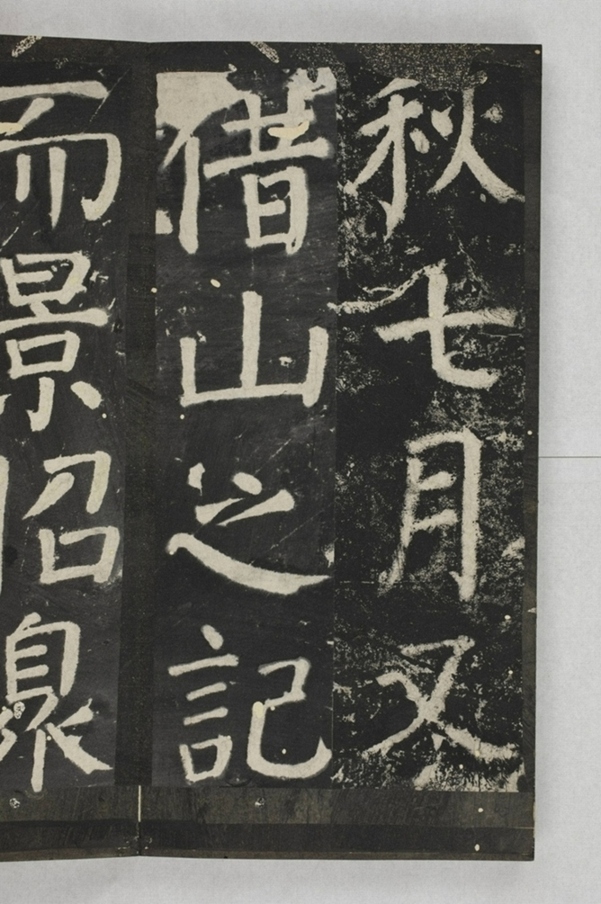 秋七月又
借山之記
而景